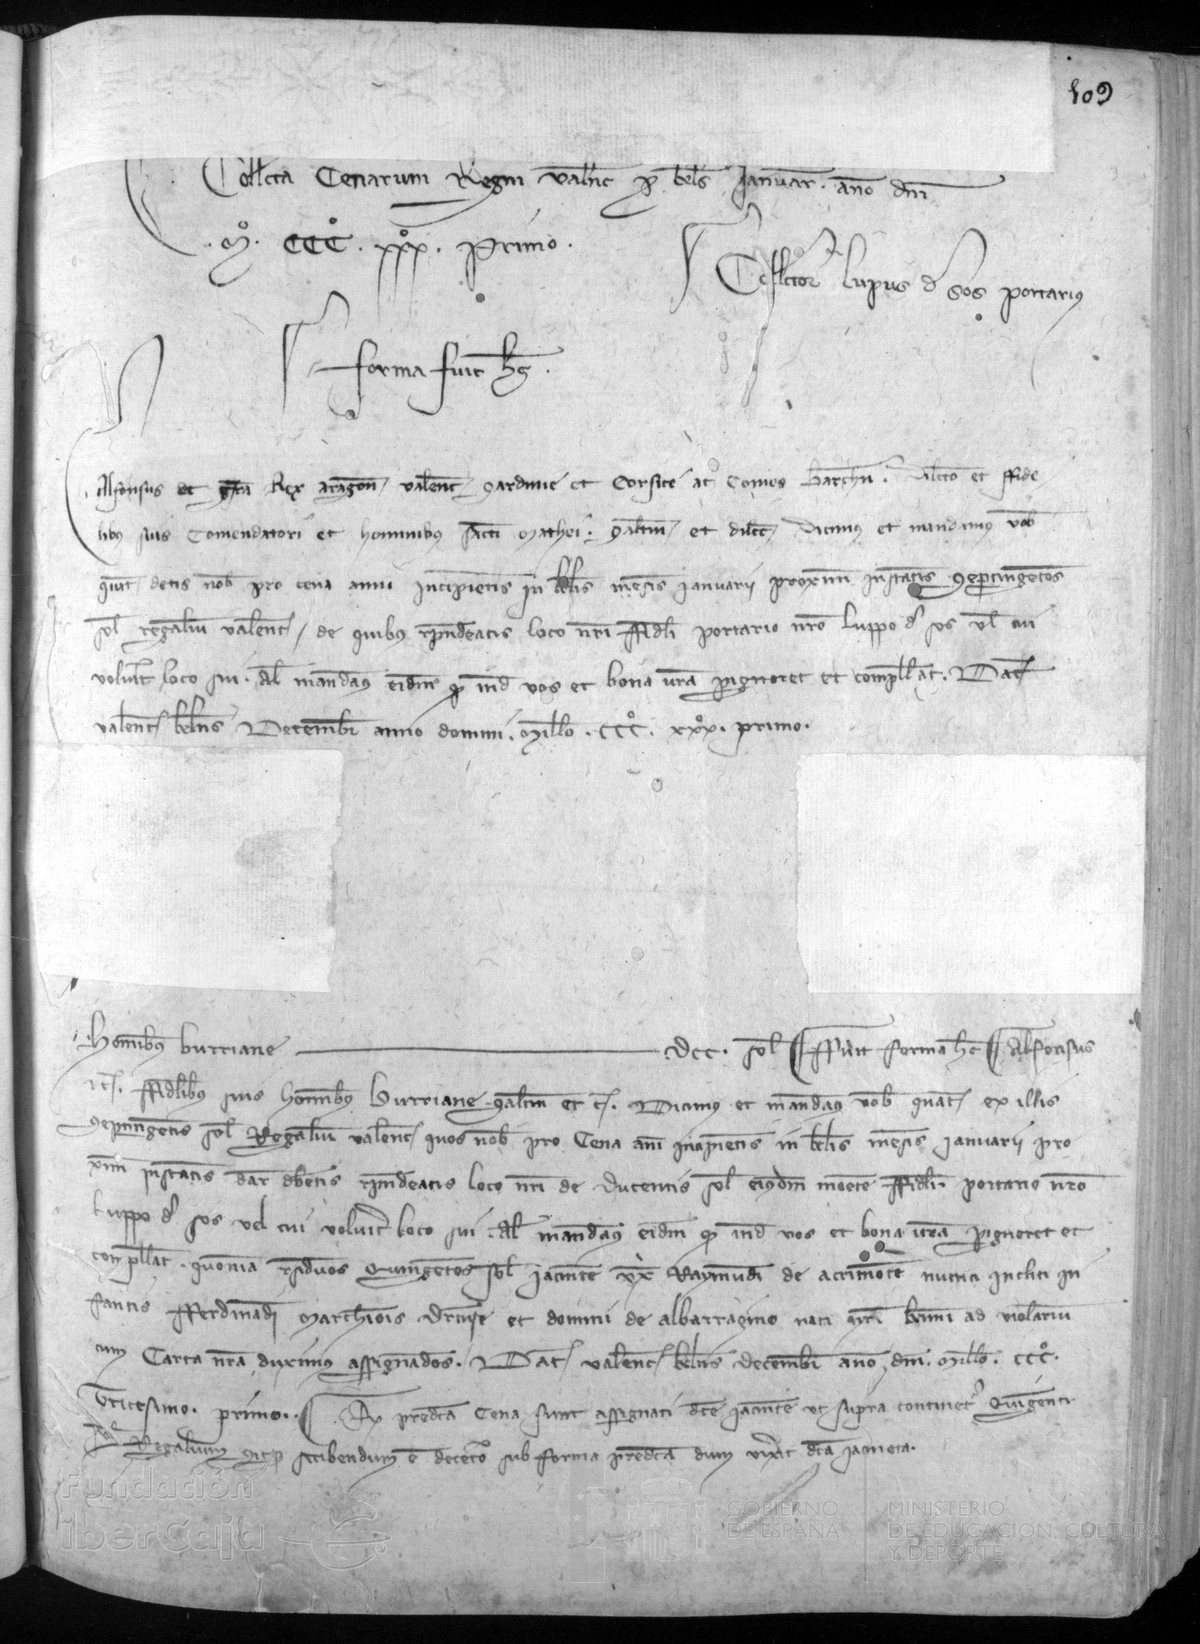 109
Coll̄cta Cenarum Regni valn̄c p kls̄ Januar. año dñi
.Mº. CCCº. xxxº. primo.
Coll̄ctor Lupus d̄ Sos portarius
forma fuit h̄
Alfonsus et gr̄a Rex aragon̄ valenc̄ Sardinie et Corsice ac Comes barchn̄. dil̄cto et ffide
libus suis Comendatori et hominibus sc̄ti Mathei. sal̄tm et dil̄cc̄. Dicimus et mandamus vob̄
quat̄ detis nob̄ pro cena anni incipientis in kl̄is mēsis januarii proximi instātis Septingētos
sol̄ regaliū valenc̄, de quibus rn̄deatis loco nr̄i ffidl̄i portario nr̄o Luppo d̄ sos vl̄ cui
voluit̄ loco sui. Al̄ mandam̄ eidm̄ qd̄ ind̄ vos et bona vr̄a pignoret et compell̄at. Dat̄
valenc̄ kln̄s Decembr̄ anno domini. Mill̄o. CCCº. xxxº. primo.
Homībȝ burriane ——— .DCC. sol̄ ffuit forma h̄c Alfonsus
rc̄. ffidl̄ibȝ suis homībȝ Burriane sal̄tm et c̄. Dicimus et mandam̄ vob̄ quat̄ ex illis
Septingētis sol̄ Regaliū valenc̄ quos nob̄ pro Cena anī incipiētis in kl̄is mēsis januarii pro
ximi instātis dar̄ debetis rn̄deatis loco nr̄i de ducentis sol̄ eiusdm̄ monete ffidl̄i portario nr̄o
Luppo d̄ sos vel cui voluit̄ loco sui. Al̄ mandam̄ eidm̄ qd̄ ind̄ vos et bona vr̄a pigneret et
conpell̄at. quoniā residuos Quingētos sol̄ jacmēte ux̄ Raymundi de acrimōte nutrici incliti in
fantis fferdinādi Marchiōis Dertuse et domini de albarrazino nati nr̄i kr̄mi ad violariū
cum Carta nr̄a duximus assignādos. Dat̄ valenc̄ kln̄s decembr̄ año dn̄i. Mill̄o. CCCº.
Tricesimo. primo. Ex predc̄a Cena sunt assignati dc̄e jacmēte ut supra continet̄ Quigenti
sol̄ Regalium scribendum ē decet̄o sub forma predc̄a dum vixit dc̄a jacmeta.
Fundación
iberCaja
GOBIERNO
DE ESPAÑA
MINISTERIO
DE EDUCACIÓN, CULTURA
Y DEPORTE